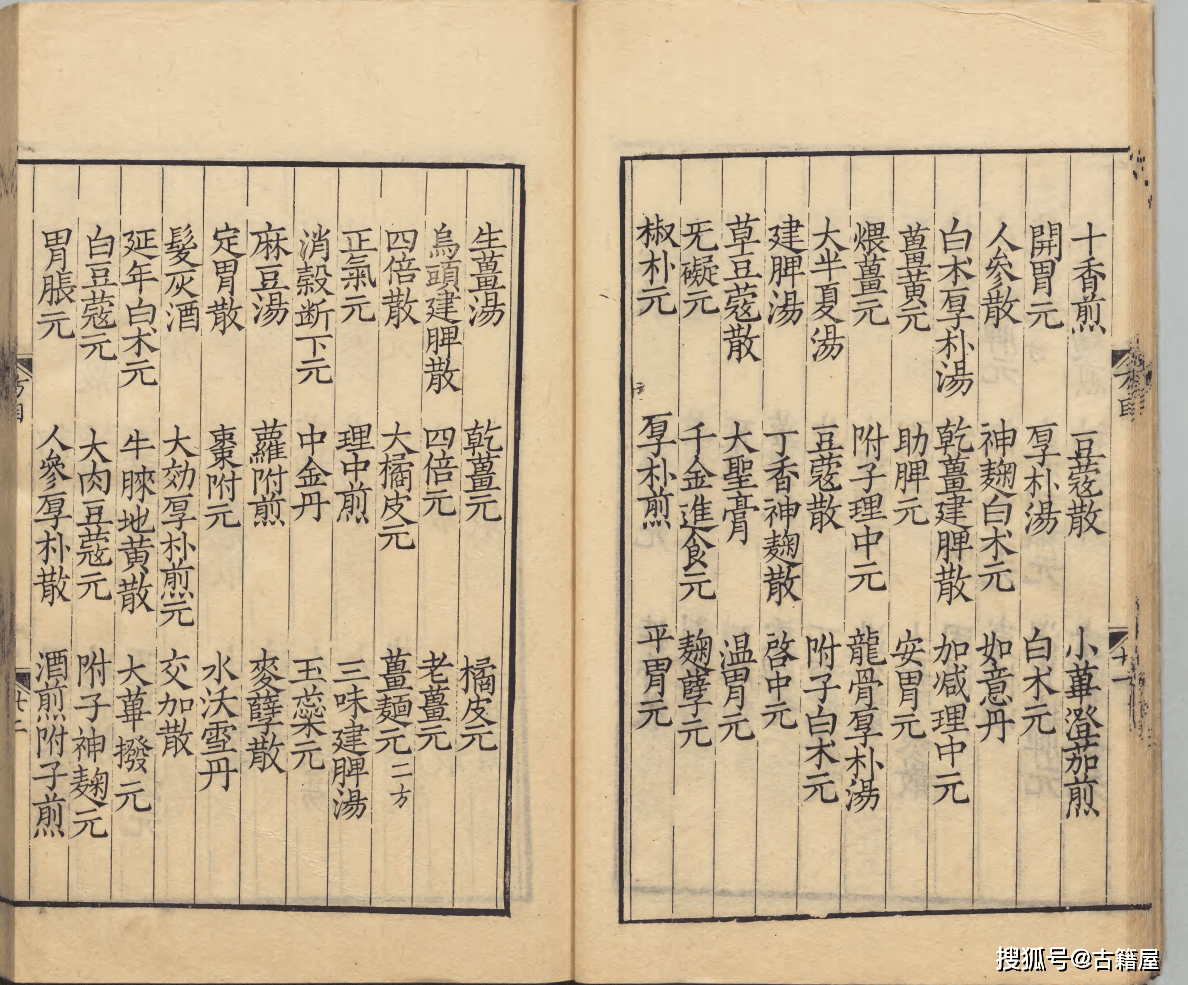 十香煎　豆蔻散　小蓽澄茄煎
開胃元　厚朴湯　白朮元
人參散　神麴白朮元　如意丹
白朮厚朴湯　乾薑建脾散　加減理中元
薑黃元　助脾元　安胃元
煨薑元　附子理中元　龍骨厚朴湯
大半夏湯　豆蔻散　附子白朮元
建脾湯　丁香神麴散　啓中元
草豆蔻散　大聖膏　温胃元
无礙元　千金進食元　麴蘖元
椒朴元　厚朴煎　平胃元
生薑湯　乾薑元　橘皮元
烏頭建脾散　四倍元　老薑元
四倍散　大橘皮元　薑麵元二方
正氣元　理中煎　三味建脾湯
消穀断下元　中金丹　玉蕊元
麻豆湯　蘿附煎　麥蘖散
定胃散　棗附元　水沃雪丹
髮灰酒　大効厚朴煎元　交加散
延年白朮元　牛睞地黄散　大蓽撥元
白豆蔻元　大肉豆蔻元　附子神麴元
胃脹元　人參厚朴散　酒煎附子煎
搜狐号@古籍屋